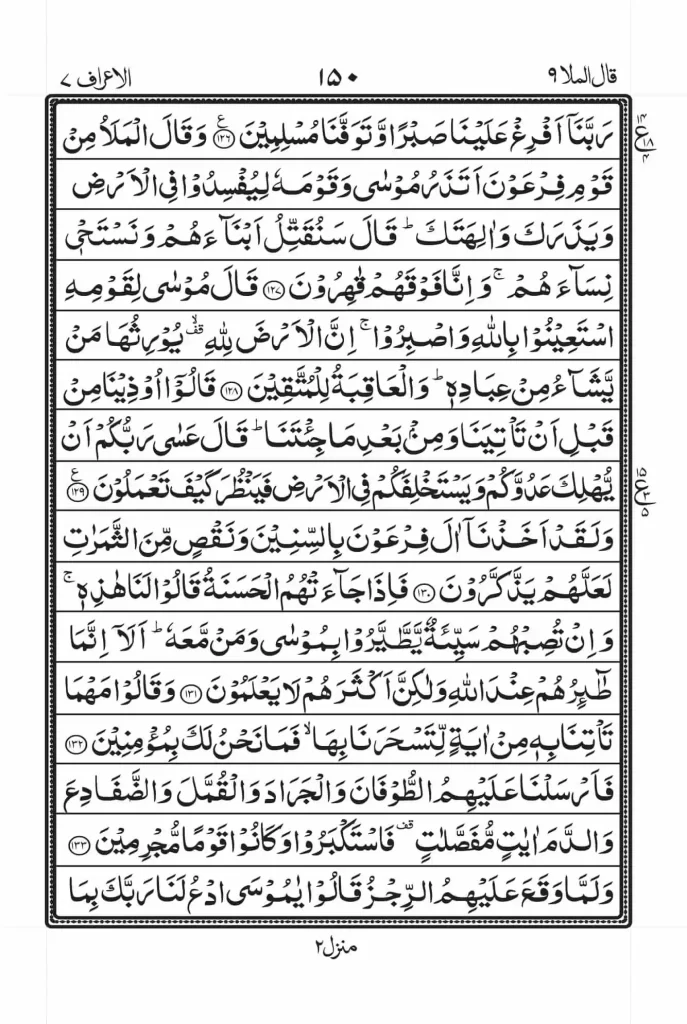 قال الملا ۹
۱۵۰
الاعراف ۷
رَبَّنَآ اَفْرِغْ عَلَيْنَا صَبْرًا وَّتَوَفَّنَا مُسْلِمِيْنَ ﴿۱۲۶﴾ ع وَقَالَ الْمَلَاُ مِنْ
قَوْمِ فِرْعَوْنَ اَتَذَرُ مُوْسٰى وَقَوْمَهٗ لِيُفْسِدُوْا فِى الْاَرْضِ
وَيَذَرَكَ وَاٰلِهَتَكَ ؕ قَالَ سَنُقَتِّلُ اَبْنَآءَهُمْ وَنَسْتَحْىٖ
نِسَآءَهُمْ ۚ وَاِنَّا فَوْقَهُمْ قٰهِرُوْنَ ﴿۱۲۷﴾ قَالَ مُوْسٰى لِقَوْمِهِ
اسْتَعِيْنُوْا بِاللّٰهِ وَاصْبِرُوْا ۚ اِنَّ الْاَرْضَ لِلّٰهِ ۙ قف يُوْرِثُهَا مَنْ
يَّشَآءُ مِنْ عِبَادِهٖ ؕ وَالْعَاقِبَةُ لِلْمُتَّقِيْنَ ﴿۱۲۸﴾ قَالُوْٓا اُوْذِيْنَا مِنْ
قَبْلِ اَنْ تَاْتِيَنَا وَمِنْۢ بَعْدِ مَا جِئْتَنَا ؕ قَالَ عَسٰى رَبُّكُمْ اَنْ
يُّهْلِكَ عَدُوَّكُمْ وَيَسْتَخْلِفَكُمْ فِى الْاَرْضِ فَيَنْظُرَ كَيْفَ تَعْمَلُوْنَ ﴿۱۲۹﴾ ع
وَلَقَدْ اَخَذْنَآ اٰلَ فِرْعَوْنَ بِالسِّنِيْنَ وَنَقْصٍ مِّنَ الثَّمَرٰتِ
لَعَلَّهُمْ يَذَّكَّرُوْنَ ﴿۱۳۰﴾ فَاِذَا جَآءَتْهُمُ الْحَسَنَةُ قَالُوْا لَنَا هٰذِهٖ ۚ
وَاِنْ تُصِبْهُمْ سَيِّئَةٌ يَّطَّيَّرُوْا بِمُوْسٰى وَمَنْ مَّعَهٗ ؕ اَلَآ اِنَّمَا
طٰٓئِرُهُمْ عِنْدَ اللّٰهِ وَلٰكِنَّ اَكْثَرَهُمْ لَا يَعْلَمُوْنَ ﴿۱۳۱﴾ وَقَالُوْا مَهْمَا
تَاْتِنَا بِهٖ مِنْ اٰيَةٍ لِّتَسْحَرَنَا بِهَا ۙ فَمَا نَحْنُ لَكَ بِمُؤْمِنِيْنَ ﴿۱۳۲﴾
فَاَرْسَلْنَا عَلَيْهِمُ الطُّوْفَانَ وَالْجَرَادَ وَالْقُمَّلَ وَالضَّفَادِعَ
وَالدَّمَ اٰيٰتٍ مُّفَصَّلٰتٍ قف فَاسْتَكْبَرُوْا وَكَانُوْا قَوْمًا مُّجْرِمِيْنَ ﴿۱۳۳﴾
وَلَمَّا وَقَعَ عَلَيْهِمُ الرِّجْزُ قَالُوْا يٰمُوْسَى ادْعُ لَنَا رَبَّكَ بِمَا
منزل ۲